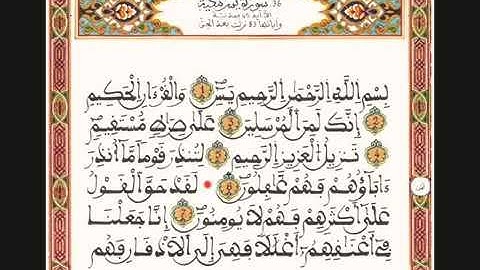 36 سورة يس مكية
بِسْمِ اللَّهِ الرَّحْمَٰنِ الرَّحِيمِ يسٓ وَالْقُرْءَانِ الْحَكِيمِ
إِنَّكَ لَمِنَ الْمُرْسَلِينَ عَلَىٰ صِرَاطٍ مُّسْتَقِيمٍ
تَنزِيلُ الْعَزِيزِ الرَّحِيمِ لِتُنذِرَ قَوْمًا مَّا أُنذِرَ
ءَابَآؤُهُمْ فَهُمْ غَٰفِلُونَ لَقَدْ حَقَّ الْقَوْلُ
عَلَىٰ أَكْثَرِهِمْ فَهُمْ لَا يُومِنُونَ إِنَّا جَعَلْنَا
فِي أَعْنَٰقِهِمْ أَغْلَٰلًا فَهِيَ إِلَى الْأَذْقَانِ فَهُم